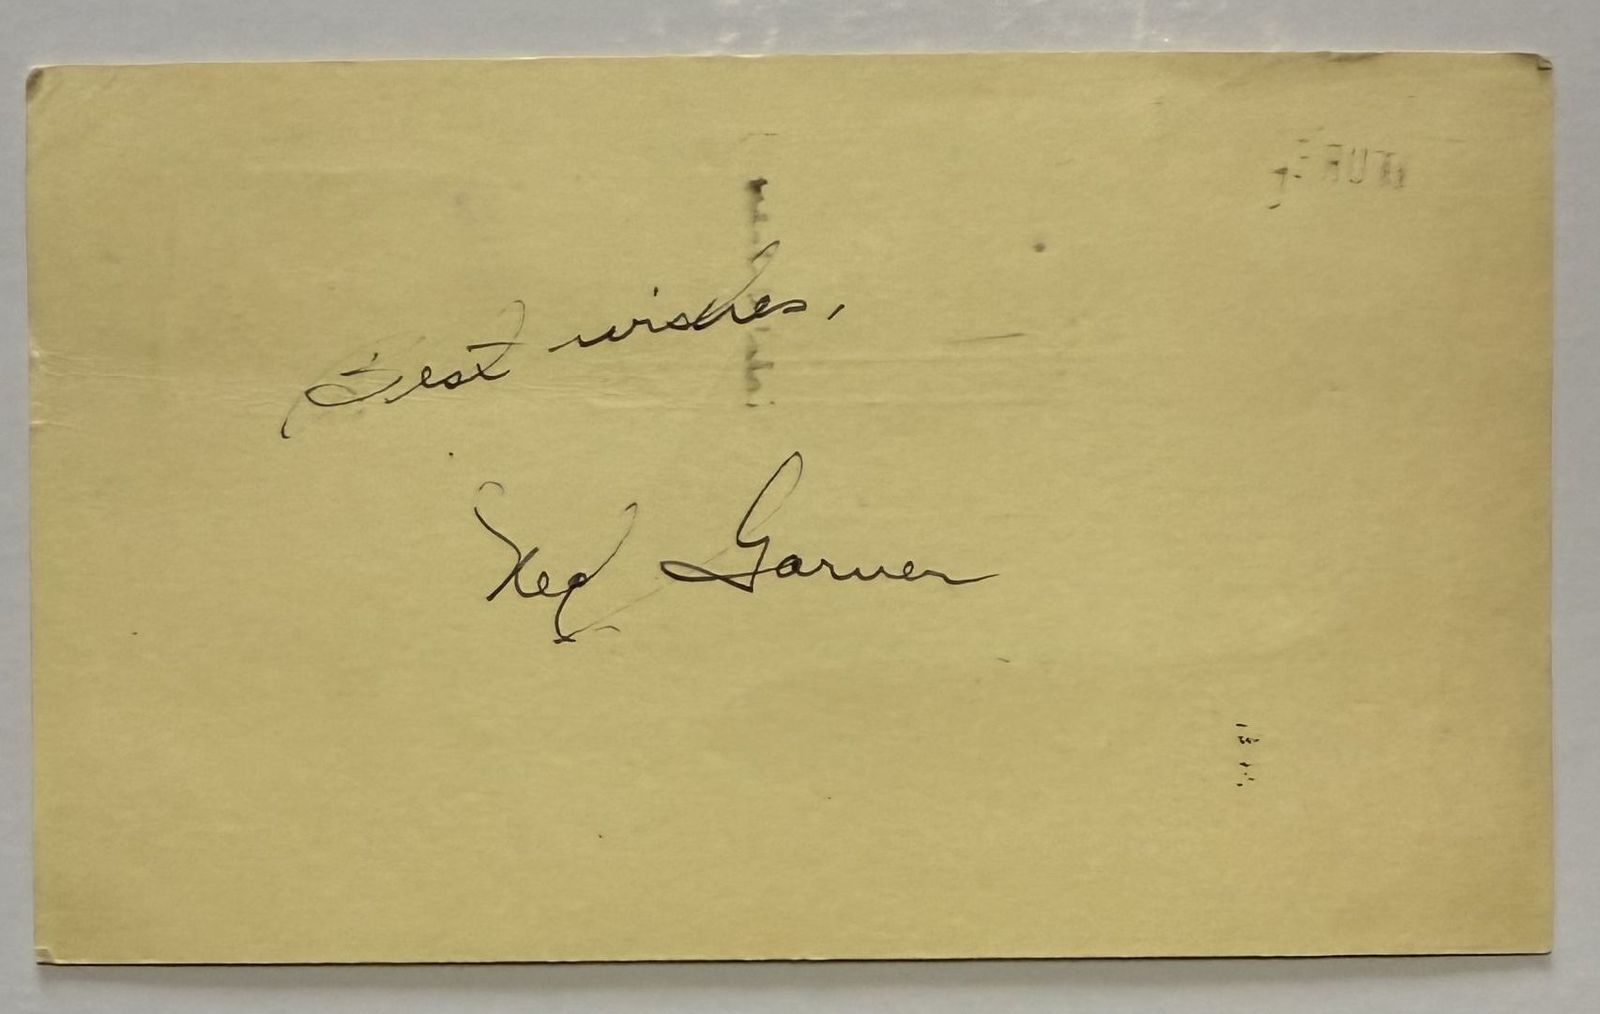 Best wishes,
Ned Garver